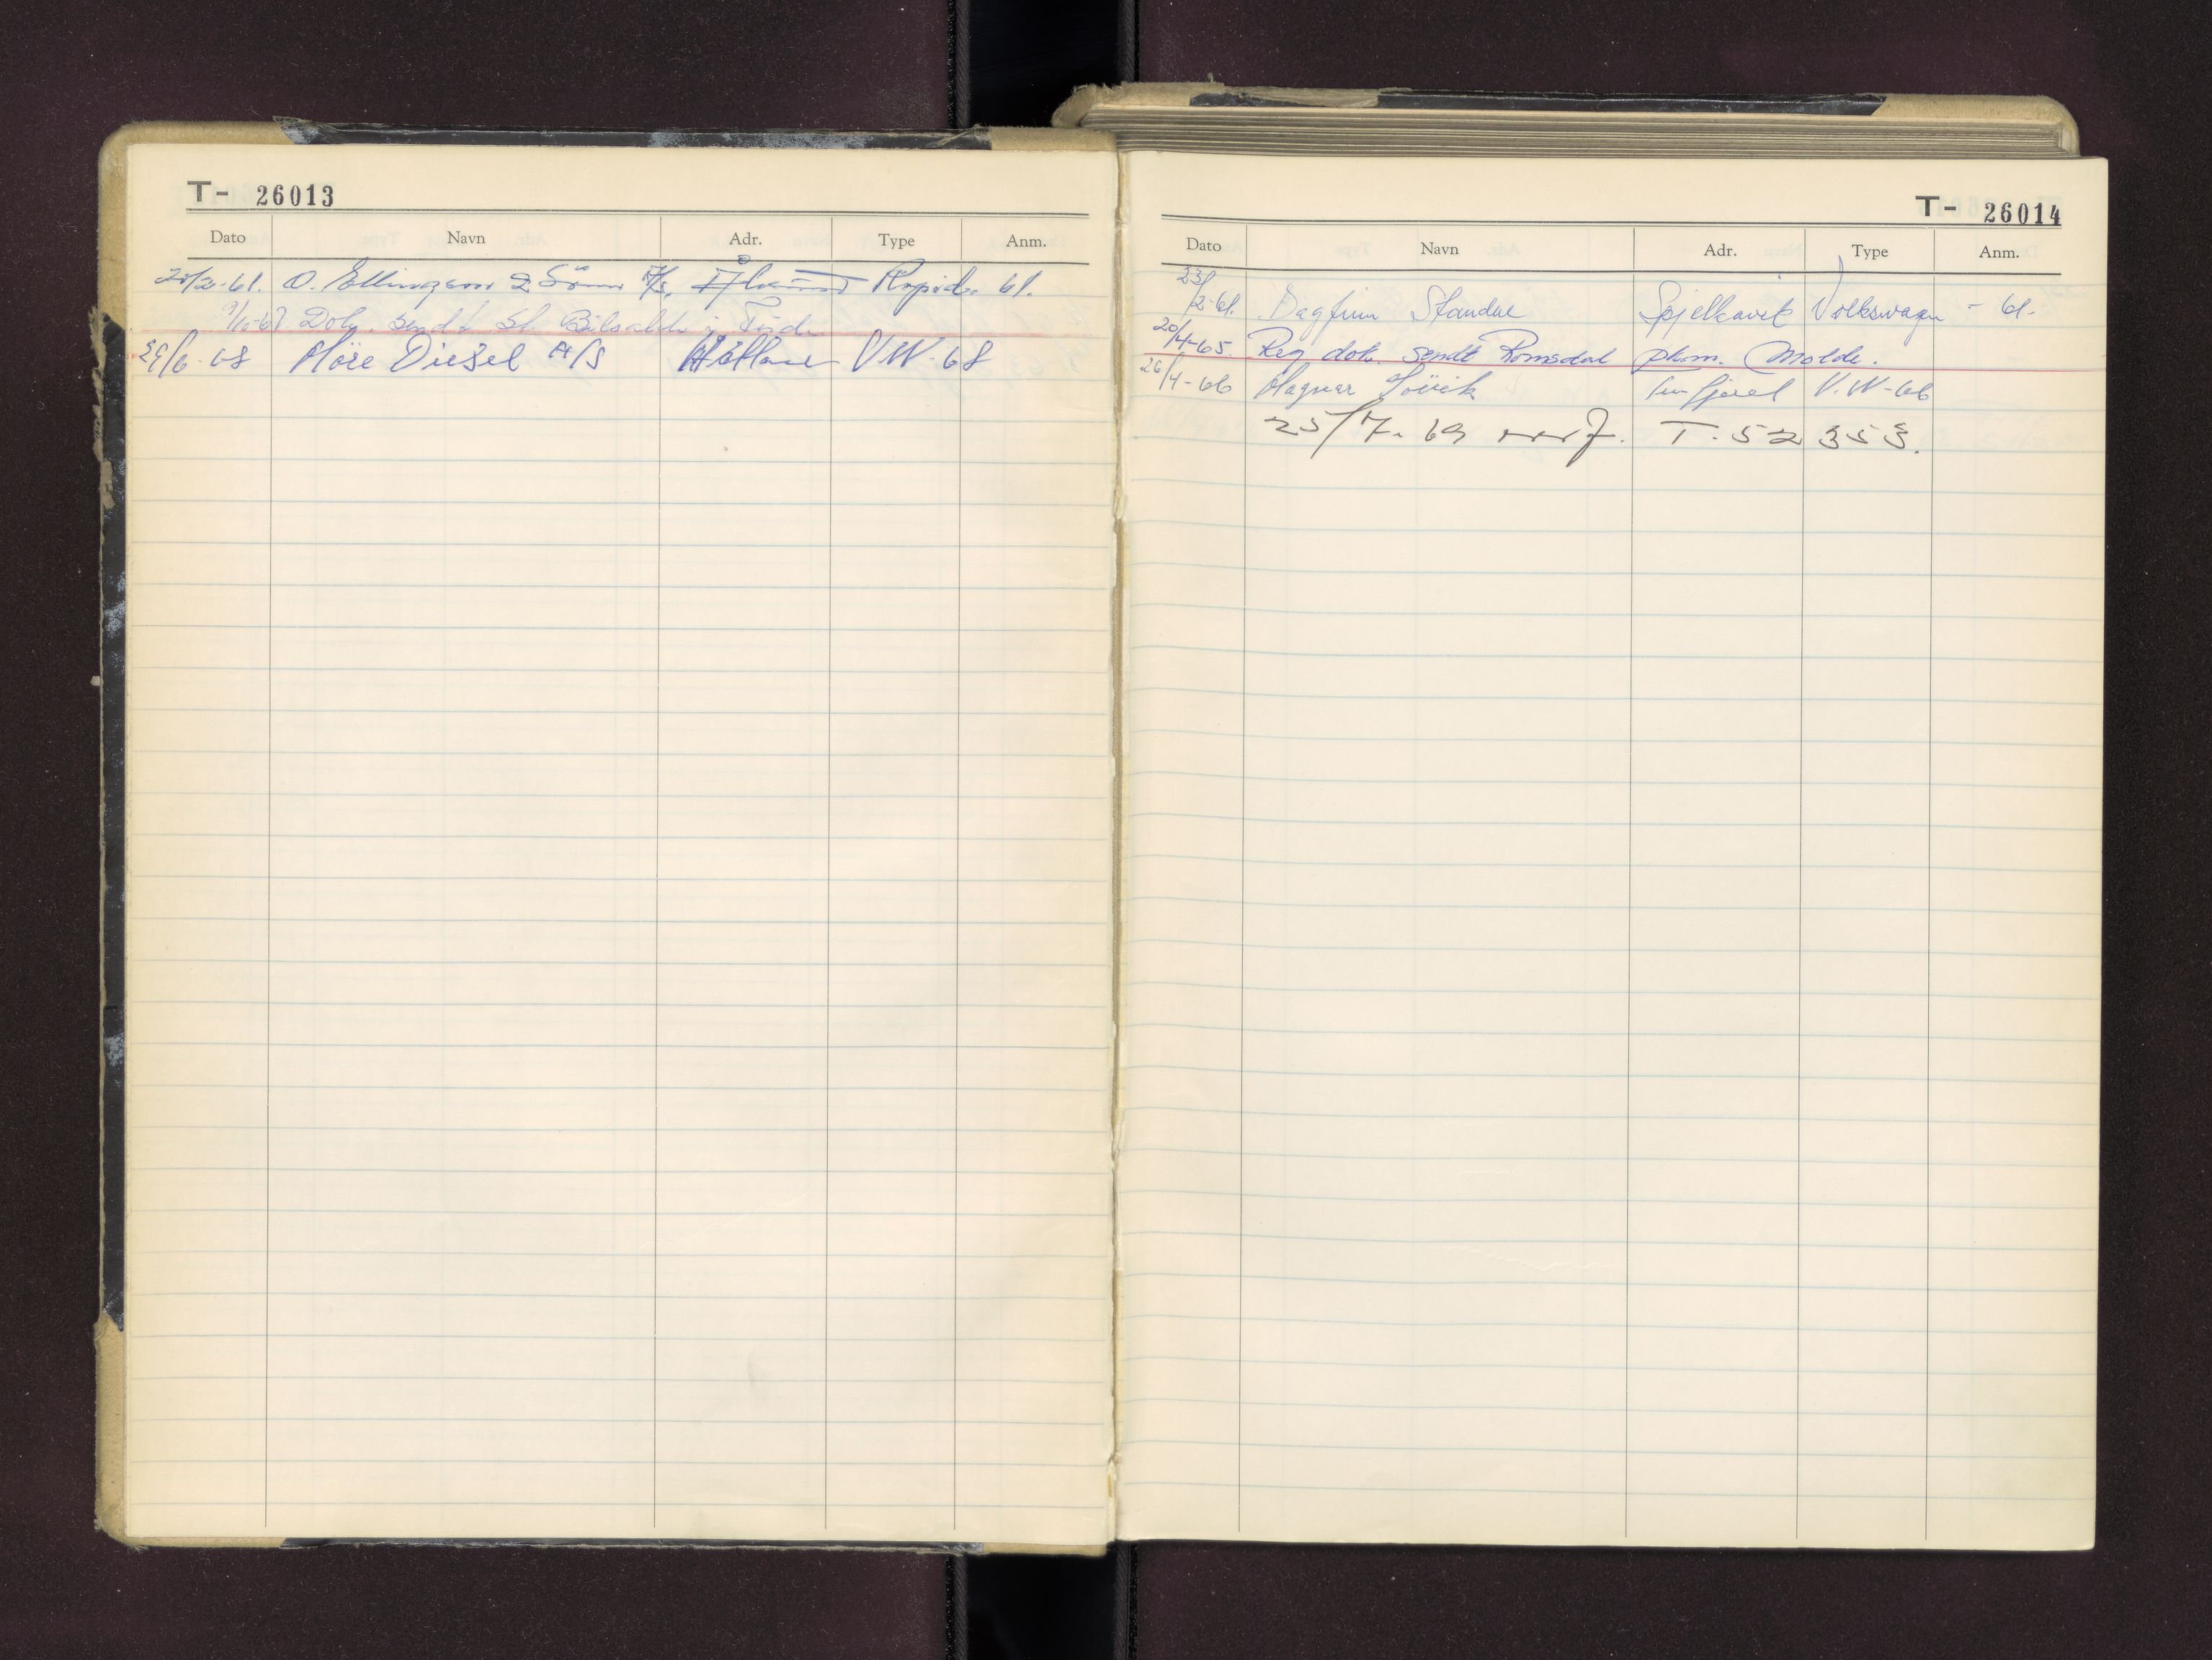 T- 26013
Dato Navn Adr. Type Anm.
/2-61. O. Ellingsen & Sönn A/S. Rapid. 61.
Dok. sendt St. Bilsakk. i Förde
29/6-68 Möre Diesel A/S VW-68
T- 26014
Dato Navn Adr. Type Anm.
23/2-61. Dagfinn Standal Spjelkavik Volkswagen - 61.
20/4-65. Reg dok. sendt Romsdal pkm. Molde.
26/4-66 Magnar V.W-66
25/7-69 T. 52353.